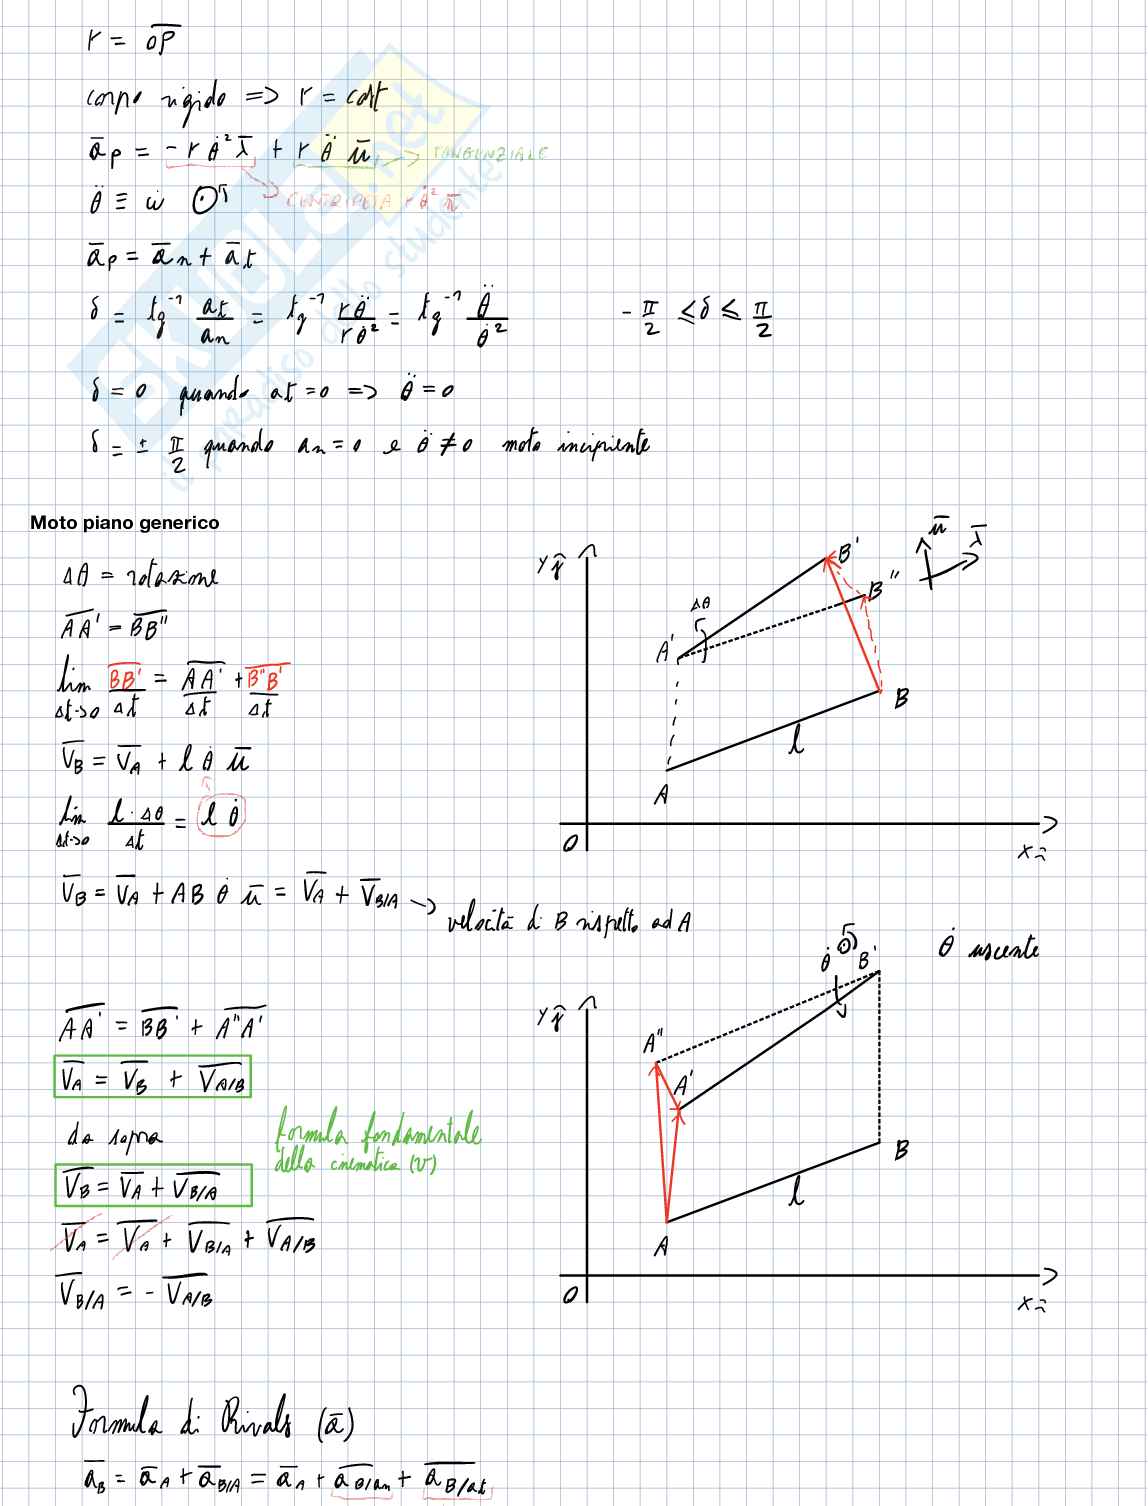 r = O̅P̅
corpo rigido => r = cost
āₚ = - r θ̇² λ̄ + r θ̈ μ̄ -> TANGENZIALE
θ̈ ≡ ω̇ CENTRIPETA r θ̇² n̄
āₚ = āₙ + āₜ
δ = tg⁻¹ at/an = tg⁻¹ rθ̈/rθ̇² = tg⁻¹ θ̈/θ̇² - π/2 ≤ δ ≤ π/2
δ = 0 quando at = 0 => θ̈ = 0
δ = ± π/2 quando an = 0 e θ̈ ≠ 0 moto incipiente
SKUOLA.net
il paradiso dello studente
Moto piano generico
Δθ = rotazione
AA' = BB''
lim Δt->0 BB'/Δt = AA'/Δt + B''B'/Δt
V̄B = V̄A + l θ̇ μ̄
lim Δt->0 l · Δθ/Δt = l θ̇
V̄B = V̄A + AB θ̇ μ̄ = V̄A + V̄B/A -> velocità di B rispetto ad A
y ĵ
B'
μ̄
λ̄
B''
Δθ
A'
B
l
A
O
x î
AA' = BB' + A''A'
V̄A = V̄B + V̄A/B
da sopra
formula fondamentale
della cinematica (v)
V̄B = V̄A + V̄B/A
V̄A = V̄A + V̄B/A + V̄A/B
V̄B/A = - V̄A/B
θ̇
B'
θ̇ uscente
y ĵ
A''
A'
B
l
A
O
x î
Formula di Rivals (ā)
āB = āA + āB/A = āA + āB/an + āB/at